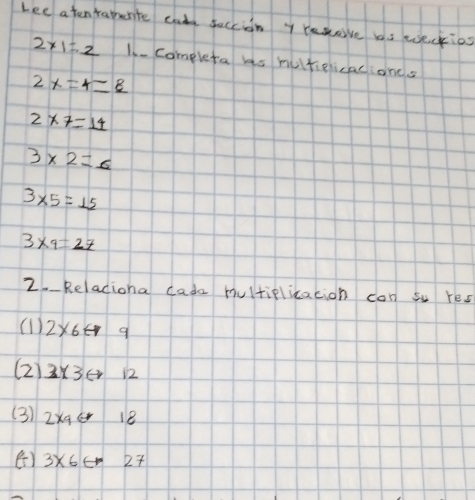 Lee atentamente cada sección y resuelve los ejercicios
2x1=2 1.- Completa las multiplicaciones
2x=4=8
2x7=14
3x2=6
3x5=15
3x9=27
2.- Relaciona cada multiplicacion con su res
(1) 2x6↔ 9
(2) 3x3↔ 12
(3) 2x9↔ 18
3x6↔ 27